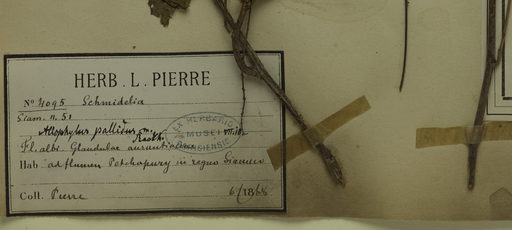 HERB. L. PIERRE
No 4095 Schmidelia
Siam. n. 51
Allophylus pallidus Radlk.
Fl. albi. Glandulae aurantiacae
HERBARIUM
MUSEI
PARISIENSIS
Hab. ad flumen Petchapury in regno Siamen
Coll. Pierre 6/1868